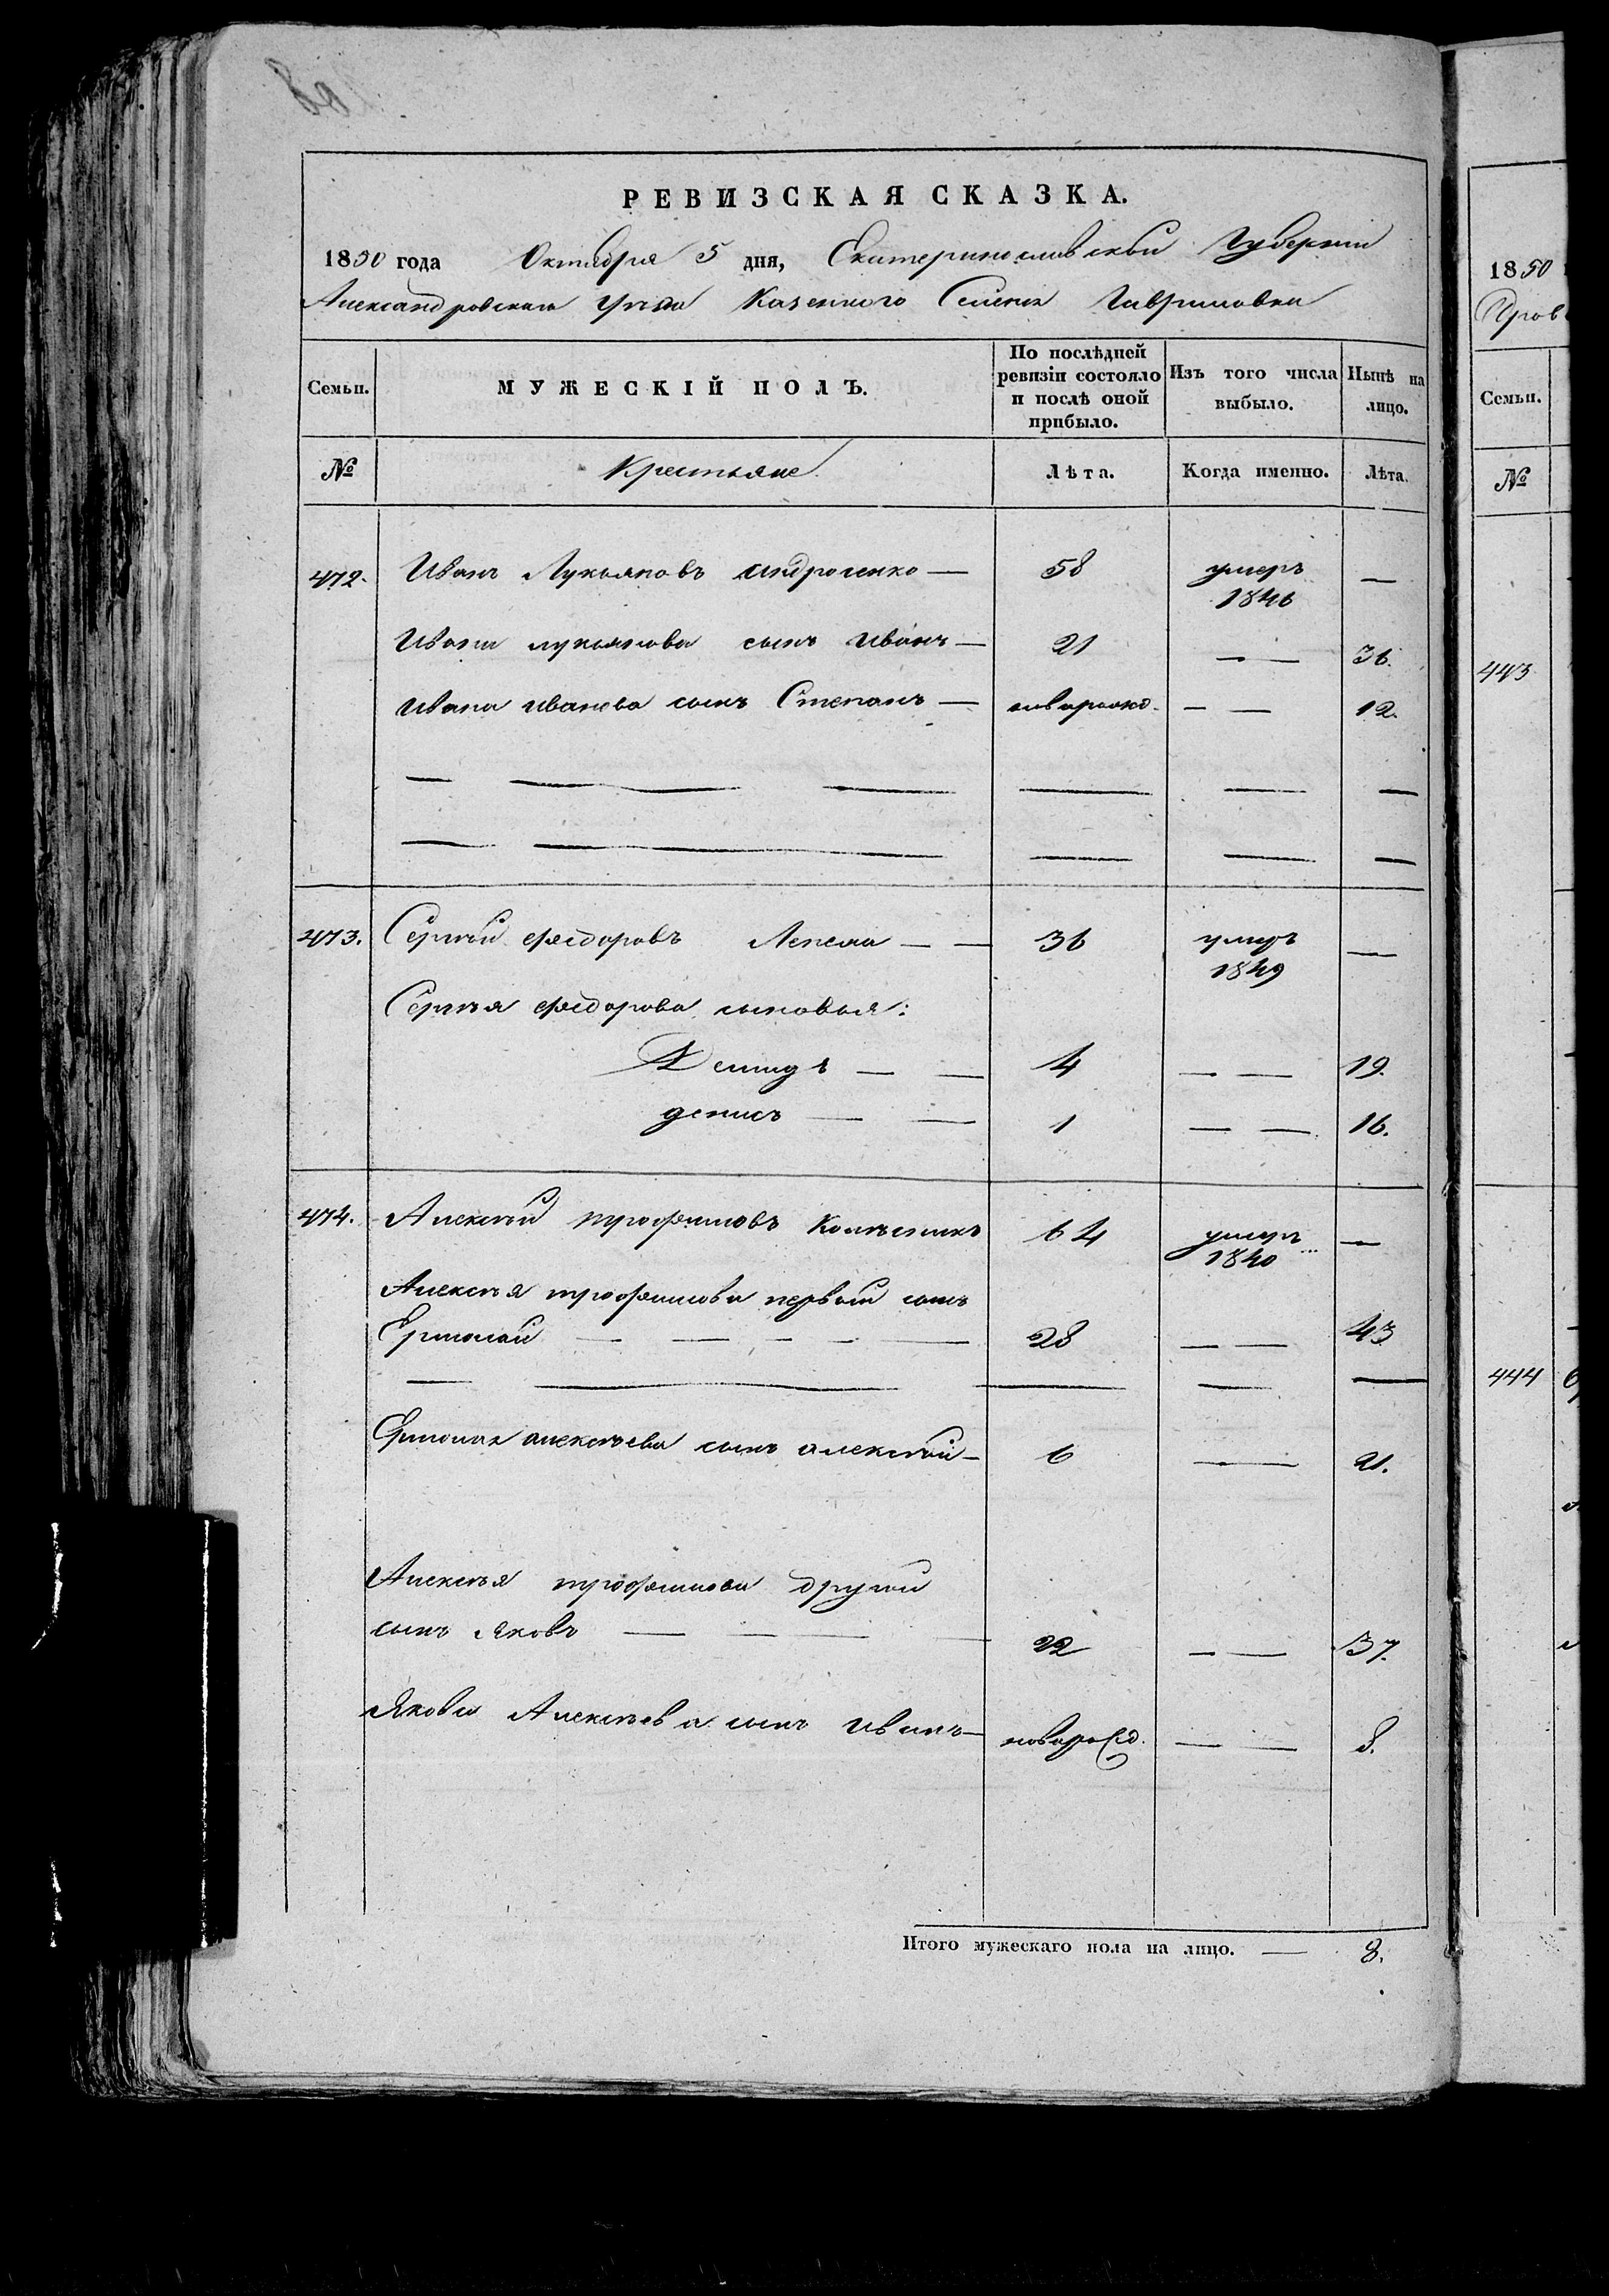 РЕВИЗСКАЯ СКАЗКА.
1850 года Октября 5 дня, Екатеринославской Губернии
Александровскаго Уѣзда Казенного Селенія Гавриловки
Семьи. МУЖЕСКІЙ ПОЛЪ. По послѣдней ревизіи состояло и послѣ оной прибыло. Изъ того числа выбыло. Нынѣ на лицо.
№ Крестьяне Лѣта. Когда именно. Лѣта.
472. Иванъ Лукьяновъ Андросенко — 58 умеръ 1846 —
Ивана лукьянова сынъ Иванъ — 21 — 36.
Ивана Иванова сынъ Степанъ — новорожд. — — 12.
473. Сергѣй Федоровъ Лепеха — — 36 умеръ 1849 —
Сергѣя Федорова сыновья:
Демидъ — — 4 — — 19.
денисъ — — 1 — — 16.
474. Алексѣй трофимовъ Колѣсникъ 64 умеръ 1840 —
Алексѣя трофимова первый сынъ
Ермолай — — — — — 28 — — 43
Ермолая алексѣева сынъ алексѣй — 6 — 21.
Алексѣя трофимова другой
сынъ Яковъ — — — — 22 — — 37.
Якова Алексѣева сынъ Иванъ — новорожд. — — 8.
Итого мужескаго пола на лицо. — 8.
1850
Семьи.
№
443
444